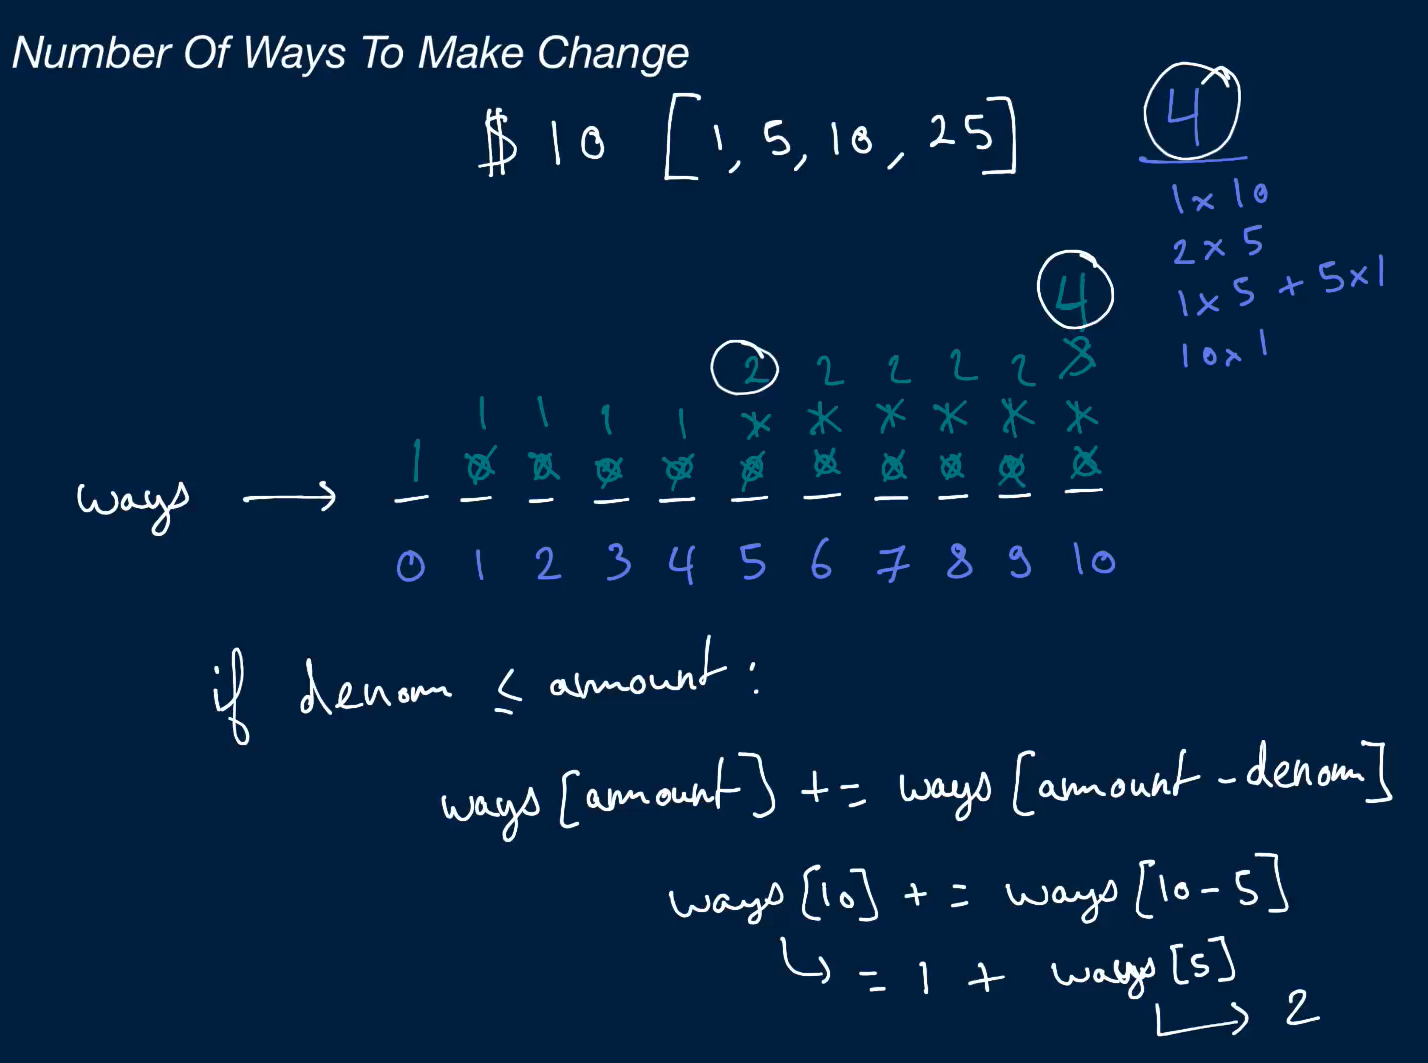 Number Of Ways To Make Change
$ 10 [1, 5, 10, 25]
4
1 x 10
2 x 5
1 x 5 + 5 x 1
10 x 1
4
2 2 2 2 2 3
1 1 1 1 1 1 1 1 1 1
1 0 0 0 0 0 0 0 0 0 0
ways →
0 1 2 3 4 5 6 7 8 9 10
if denom ≤ amount:
ways [amount] += ways [amount - denom]
ways [10] += ways [10 - 5]
↳ = 1 + ways [5]
↳ 2